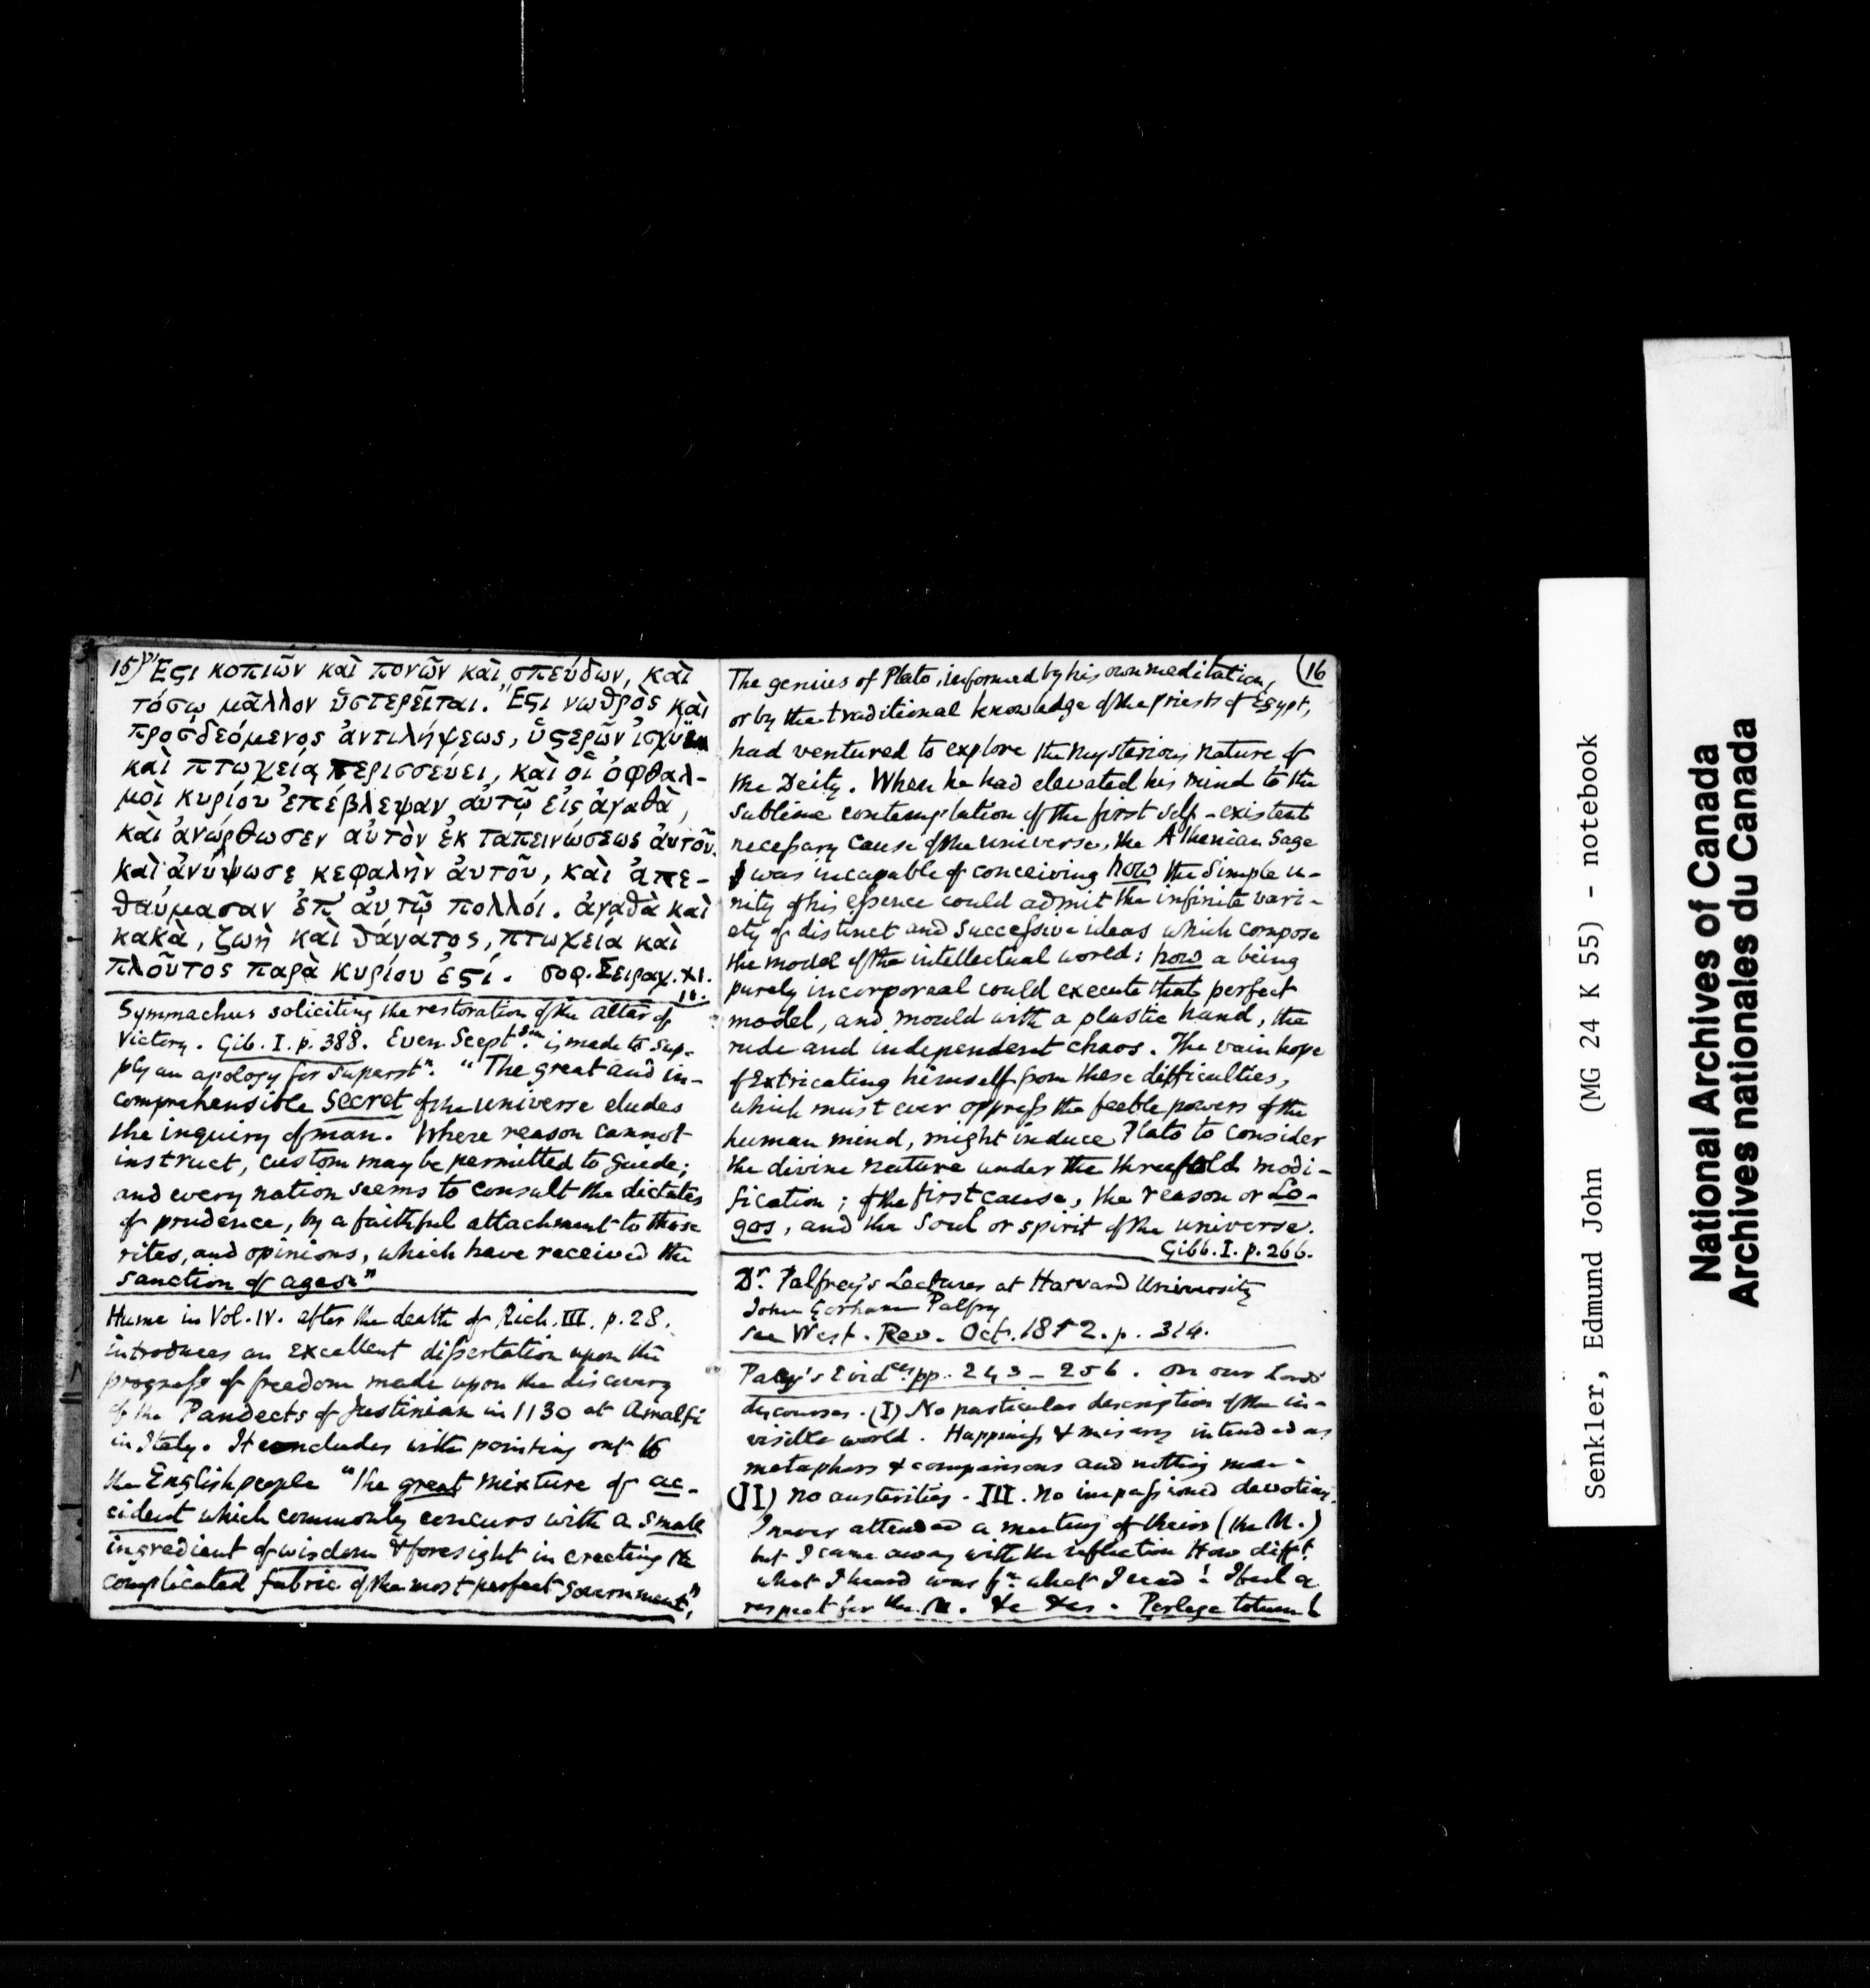 15) Ἔϛι κοπιῶν καὶ πονῶν καὶ σπεύδων, καὶ
τόσῳ μᾶλλον ὕστερεῖται. Ἔϛι νωθρὸς καὶ
προσδεόμενος ἀντιλήψεως, ὑϛερῶν ἰσχύϊ
καὶ πτωχείᾳ περισσεύει, καὶ οἱ ὀφθαλ-
μοὶ κυρίου ἐπέβλεψαν αὐτῷ εἰς ἀγαθὰ,
καὶ ἀνώρθωσεν αὐτὸν ἐκ ταπεινώσεως ἀυτοῦ.
καὶ ἀνύψωσε κεφαλὴν ἀυτοῦ, καὶ ἀπε-
θαύμασαν ἐπ' ἀυτῷ πολλοί. ἀγαθὰ καὶ
κακὰ, ζωὴ καὶ θάνατος, πτωχεία καὶ
πλοῦτος παρὰ κυρίου ἐϛί. σοφ. Σειραχ. XI.
11.
Symmachus soliciting the restoration of the altar of
Victory. Gib. I. p. 388. Even Scept.sm is made to sup-
ply an apology for Superstn. "The great and in-
comprehensible secret of the universe eludes
the inquiry of man. Where reason cannot
instruct, custom may be permitted to guide;
and every nation seems to consult the dictates
of prudence, by a faithful attachment to those
rites, and opinions, which have received the
sanction of ages."
Hume in Vol. IV. after the death of Rich. III. p. 28.
introduces an excellent dissertation upon the
progress of freedom made upon the discovery
of the Pandects of Justinian in 1130 at Amalfi
in Italy. It concludes with pointing out to
the English people "the great mixture of ac-
cident which commonly concurs with a small
ingredient of wisdom & foresight in erecting the
complicated fabric of the most perfect government".
16
The genius of Plato, informed by his own meditation,
or by the traditional knowledge of the priests of Egypt,
had ventured to explore the mysterious nature of
the Deity. When he had elevated his mind to the
sublime contemplation of the first self-existent
necessary cause of the universe, the Athenian Sage
was incapable of conceiving how the simple u-
nity of his essence could admit the infinite vari-
ety of distinct and successive ideas which compose
the model of the intellectual world; how a being
purely incorporeal could execute that perfect
model, and mould with a plastic hand, the
rude and independent chaos. The vain hope
of extricating himself from these difficulties,
which must ever oppress the feeble powers of the
human mind, might induce Plato to consider
the divine nature under the threefold modi-
fication; of the first cause, the reason or Lo-
gos, and the soul or spirit of the universe.
Gibb. I. p. 266.
Dr. Palfrey's Lectures at Harvard University
John Gorham Palfry
see West. Rev. Oct. 1852. p. 314.
Paley's Evidces pp. 243-256. On our Lord's
discourses. (I) No particular description of the in-
visible world. Happiness & misery intended as
metaphors & comparisons and nothing more.
(II) no austerities. III. no impassioned devotions.
I never attended a meeting of theirs (the M.)
but I came away with the reflection How difft.
what I heard was fm. what I read! I feel a
respect for the M. &c &c. Perlege totum!
Senkler, Edmund John (MG 24 K 55) - notebook
National Archives of Canada
Archives nationales du Canada